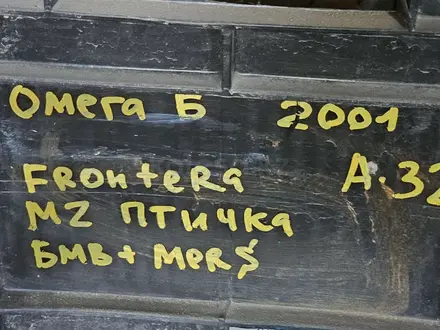 Омега Б 2001
FRonteRa A.32
MZ птичка
БМВ + MeRS